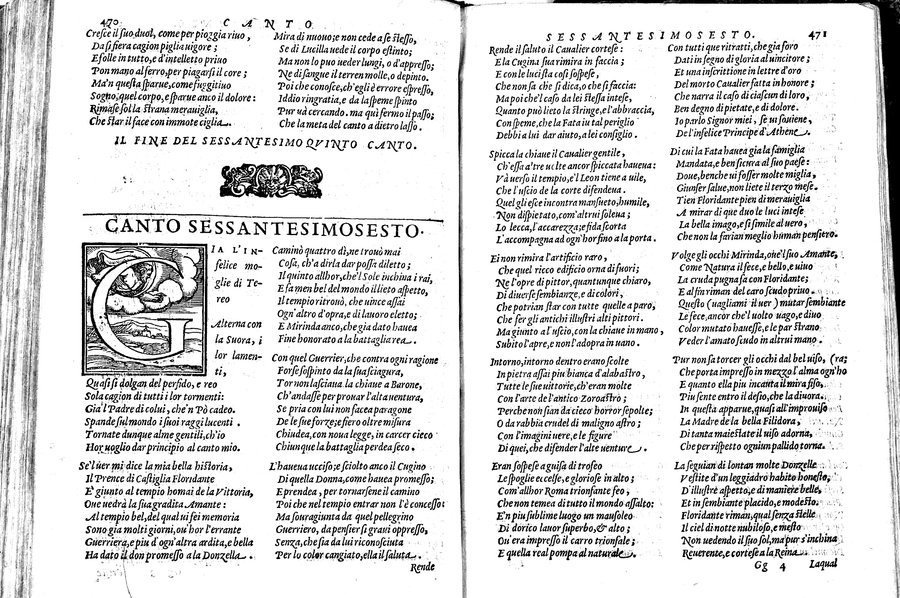 470 CANTO
Cresce il suo duol, come per pioggia riuo,
Da si fiera cagion piglia uigore;
E folle in tutto, e d'intelletto priuo
Pon mano al ferro, per piagarsi il core;
Ma'n questa sparue, come fuggitiuo
Sogno, quel corpo, e sparue anco il dolore:
Rimase sol la strana merauiglia,
Che star il face con immote ciglia.
Mira di nuouo; e non cede a se stesso,
Se di Lucilla uede il corpo estinto;
Ma non lo puo ueder lungi, o d'appresso;
Ne di sangue il terren molle, o depinto.
Poi che conosce, ch'egli è errore espresso,
Iddio ringratia, e da la speme spinto
Pur uà cercando. ma qui fermo il passo;
Che la meta del canto a dietro lasso.
IL FINE DEL SESSANTESIMO QVINTO CANTO.
CANTO SESSANTESIMOSESTO.
GIA L'IN-
felice mo-
glie di Te-
reo
Alterna con
la Suora, i
lor lamen-
ti,
Quasi si dolgan del perfido, e reo
Sola cagion di tutti i lor tormenti:
Gia'l Padre di colui, che'n Pò cadeo.
Spande sul mondo i suoi raggi lucenti.
Tornate dunque alme gentili, ch'io
Hor uoglio dar principio al canto mio.
Se'l uer mi dice la mia bella historia,
Il Prence di Castiglia Floridante
E' giunto al tempio homai de la Vittoria,
Oue uedrà la sua gradita Amante:
Al tempio bel, del qual ui fei memoria
Sono gia molti giorni, ou'hor l'errante
Guerriera, e piu d'ogn'altra ardita, e bella
Ha dato il don promesso a la Donzella.
Caminò quattro dì, ne trouò mai
Cosa, ch'a dirla dar possa diletto;
Il quinto allhor, che'l Sole inchina i rai,
E fa men bel del mondo il lieto aspetto,
Il tempio ritrouò, che uince assai
Ogn'altro d'opra, e di lauoro eletto;
E Mirinda anco, che gia dato hauea
Fine honorato a la battaglia rea.
Con quel Guerrier, che contra ogni ragione
Forse sospinto da la sua sciagura,
Tor non lasciaua la chiaue a Barone,
Ch'andasse per prouar l'alta uentura,
Se pria con lui non facea paragone
De le sue forze; e fiero oltre misura
Chiudea, con noua legge, in carcer cieco
Chiunque la battaglia perdea seco.
L'haueua ucciso; e sciolto anco il Cugino
Di quella Donna, come hauea promesso;
E prendea, per tornarsene il camino
Poi che nel tempio entrar non l'è concesso:
Ma souragiunta da quel pellegrino
Guerriero, da pensier sì graui oppresso,
Senza, che sia da lui riconosciuta
Per lo color cangiato, ella il saluta.
Rende
SESSANTESIMOSESTO. 471
Rende il saluto il Caualier cortese:
E la Cugina sua rimira in faccia;
E con le luci sta così sospese,
Che non sa che si dica, o che si faccia:
Ma poi che'l caso da lei stessa intese,
Quanto può lieto la stringe, e l'abbraccia,
Con speme, che la Fata in tal periglio
Debbia lui dar aiuto, a lei consiglio.
Spicca la chiaue il Caualier gentile,
Ch'essa a'tre uolte ancor spiccata haueua:
Và uerso il tempio, e'l Leon tiene a uile,
Che l'uscio de la corte difendeua.
Quel gli esce incontra mansueto, humile,
Non dispietato, com'altrui soleua;
Lo lecca, l'accarezza; e fida scorta
L'accompagna ad ogn'hor fino a la porta.
Ei non rimira l'artificio raro,
Che quel ricco edificio orna di fuori;
Ne l'opre di pittor, quantunque chiaro,
Di diuerse sembianze, e di colori,
Che potrian star con tutte quelle a paro,
Che fer gli antichi illustri alti pittori.
Ma giunto a l'uscio, con la chiaue in mano,
Subito l'apre, e non l'adopra in uano.
Intorno, intorno dentro erano scolte
In pietra assai piu bianca d'alabastro,
Tutte le sue uittorie, ch'eran molte
Con l'arte de l'antico Zoroastro;
Perche non sian da cieco horror sepolte;
O da rabbia crudel di maligno astro;
Con l'imagini uere, e le figure
Di quei, che difender l'alte uenture.
Eran sospese a guisa di trofeo
Le spoglie eccelse, e gloriose in alto;
Com'allhor Roma trionfante feo,
Che non temea di tutto il mondo assalto:
E'n piu sublime luogo un mausoleo
Di dorico lauor superbo, & alto;
Ou'era impresso il carro trionfale;
E quella real pompa al naturale.
Con tutti que ritratti, che gia foro
Dati in segno di gloria al uincitore;
Et una inscrittione in lettre d'oro
Del morto Caualier fatta in honore;
Che narra il caso di ciascun di loro,
Ben degno di pietate, e di dolore.
Io parlo Signor miei, se ui souiene,
De l'infelice Principe d'Athene.
Di cui la Fata hauea gia la famiglia
Mandata, e ben sicura al suo paese:
Doue, benche ui fosser molte miglia,
Giunser salue, non liete il terzo mese.
Tien Floridante pien di merauiglia
A mirar di que duo le luci intese
La bella imago, e si simile al uero,
Che non la farian meglio human pensiero.
Volge gli occhi Mirinda, oue'l suo Amante,
Come Natura il fece, e bello, e uiuo
La cruda pugna fa con Floridante;
E al fin riman del caro scudo priuo.
Questo (uagliami il uer) mutar sembiante
Le fece, ancor che'l uolto uago, e diuo
Color mutato hauesse, e le par strano
Veder l'amato scudo in altrui mano.
Pur non sa torcer gli occhi dal bel uiso, (ra;
Che porta impresso in mezzo l'alma ogn'ho
E quanto ella piu incauta il mira fiso,
Piu sente entro il desio, che la diuora.
In questa apparue, quasi all'improuiso
La Madre de la bella Filidora,
Di tanta maiestate il uiso adorna,
Che per rispetto ogniun pallido torna.
La seguian di lontan molte Donzelle
Vestite d'un leggiadro habito honesto,
D'illustre aspetto, e di maniere belle,
Et in sembiante placido, e modesto.
Floridante riman, qual senza stelle
Il ciel di notte nubiloso, e mesto
Non uedendo il suo sol, ma pur s'inchina
Reuerente, e cortese a la Reina
Gg 4 Laqual